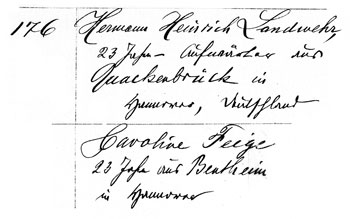 176
Hermann Heinrich Landwehr,
23 Jahr – Aufwärter aus
Quackenbrück in
Hannover, Deutschland
Caroline Feige
23 Jahr aus Bentheim
in Hannover